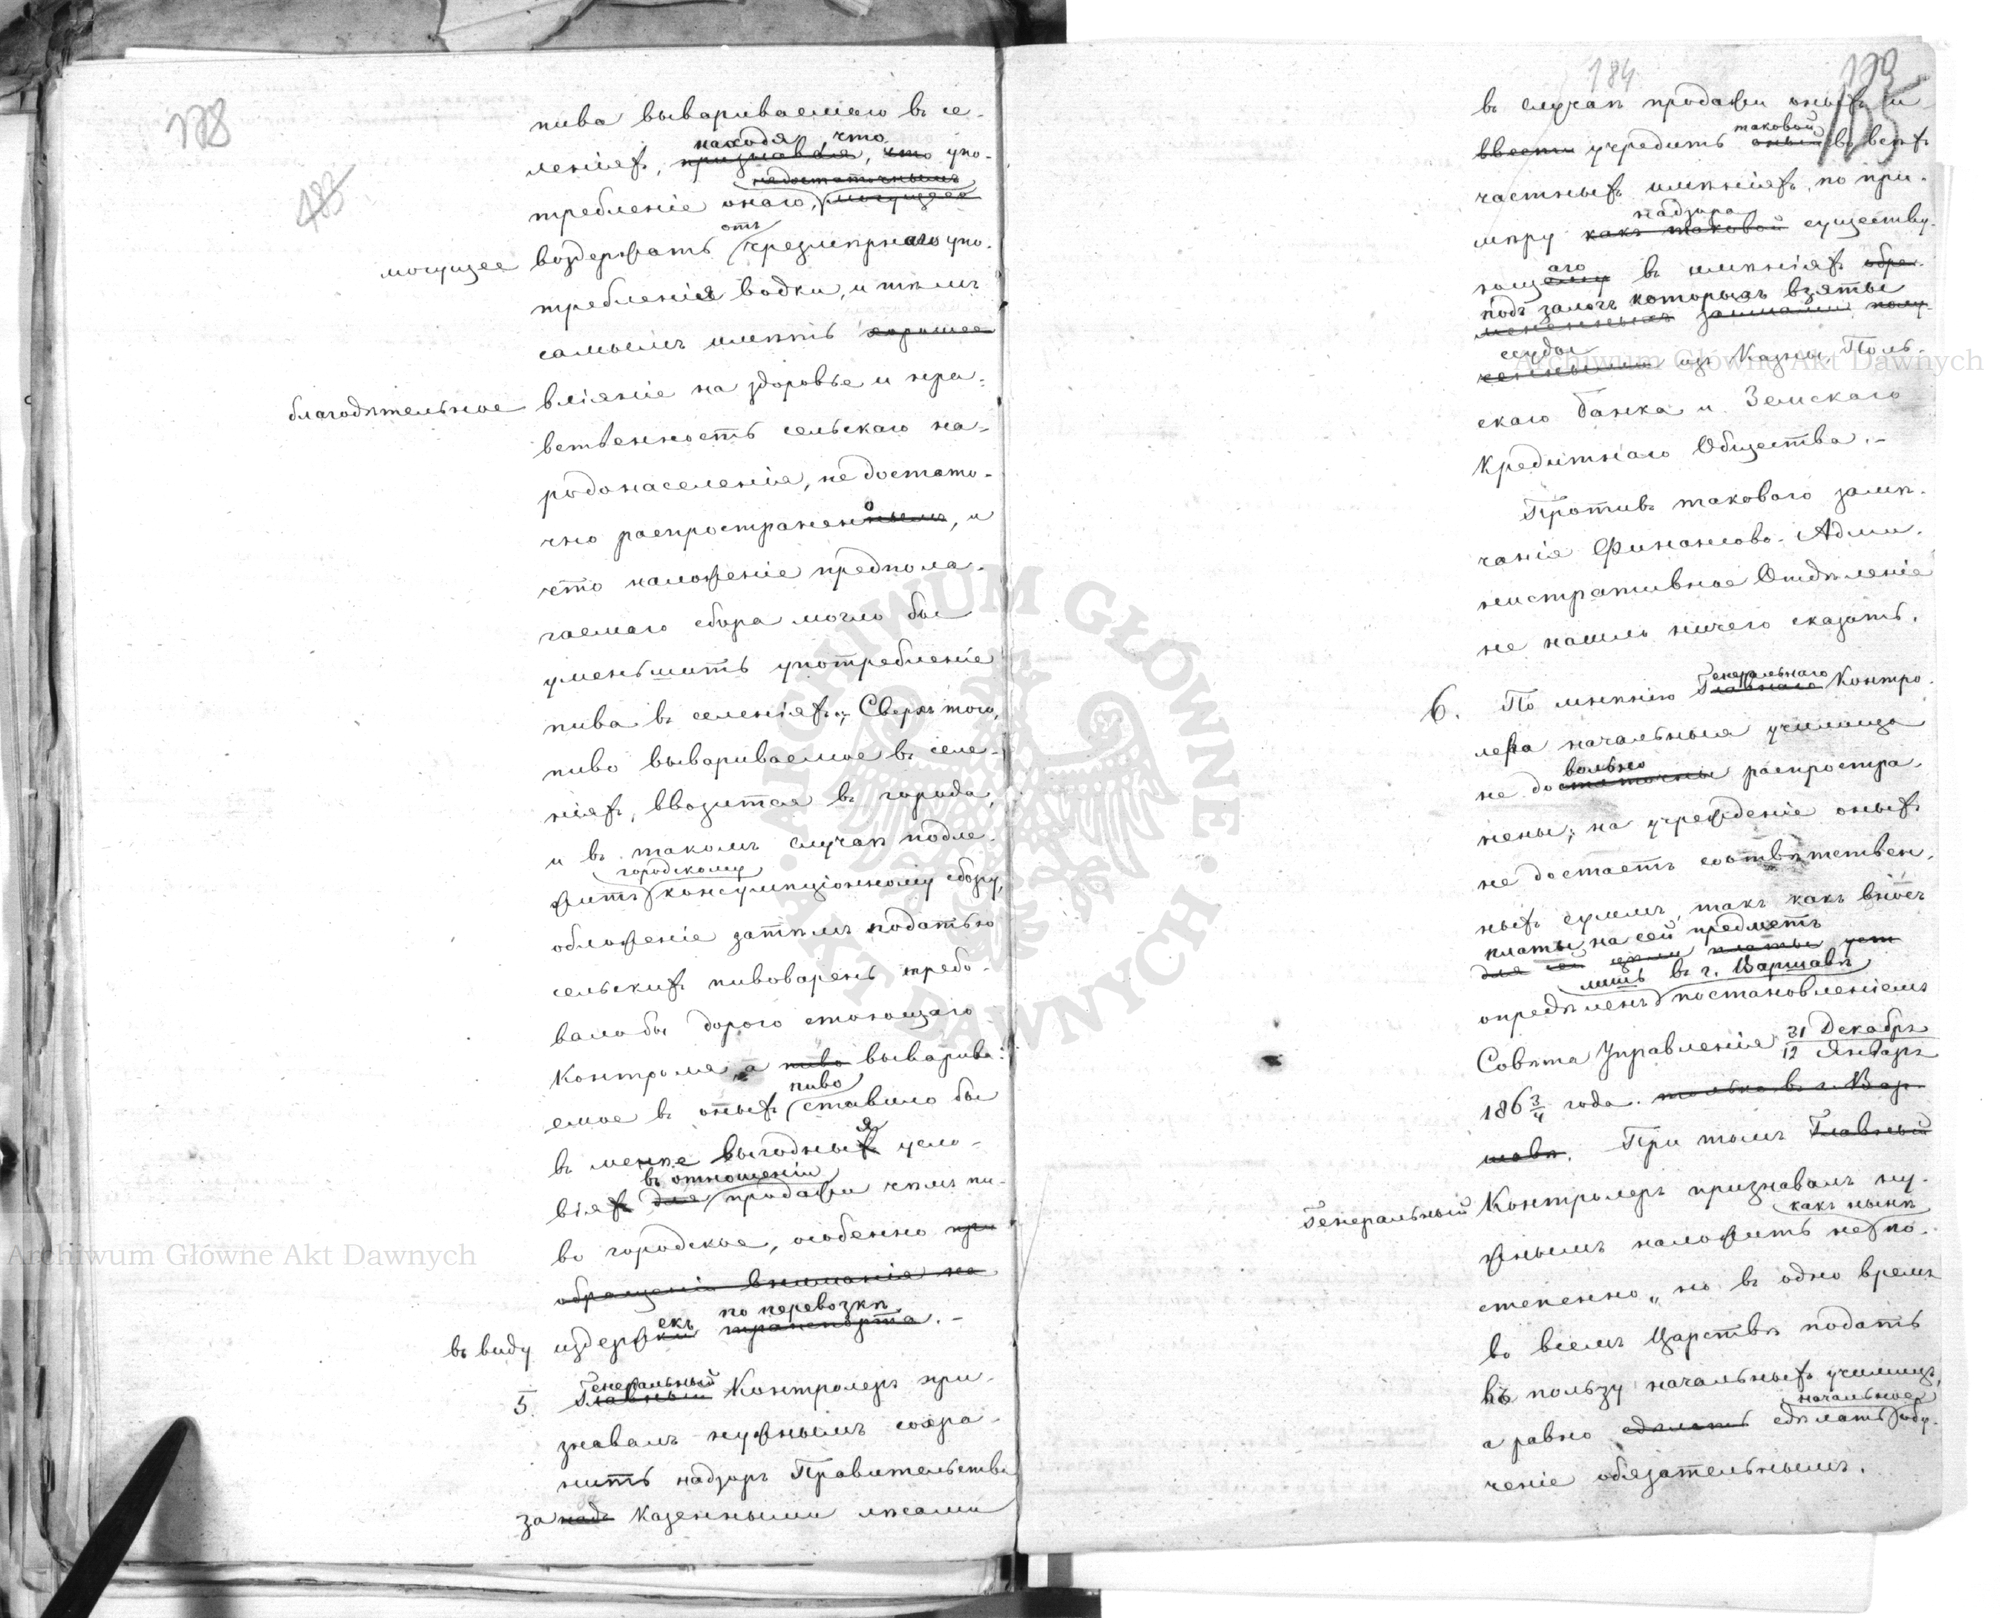 178
183
пива вывариваемаго въ се-
находя что
леніяхъ, признавая, что упо-
недостаточнымъ
требленіе онаго, могущее
отъ
могущее воздержать чрезмѣрнаго упо-
требленія водки, и тѣмъ
самымъ имѣть хорошее
благодѣтельное вліяніе на здоровье и нра-
вственность сельскаго на-
родонаселенія, не достато-
о
чно распространеннымъ, и
что наложеніе предпола-
гаемаго сбора могло бы
уменьшить употребленіе
пива въ селеніяхъ; Сверхъ того,
пиво вывариваемое въ селе-
ніяхъ, ввозится въ города,
и въ такомъ случаѣ подле-
городскому
житъ консумпціонному сбору,
обложеніе затѣмъ податью
сельскихъ пивоваренъ требо-
вало бы дорого стоющаго
Контроля, а пиво выварива-
пиво
емое въ оныхъ ставило бы
я
въ менѣе выгодныхъ усло-
въ отношеніи
віяхъ для продажи чѣмъ пи-
во городское, особенно при
обращеніи вниманія на
екъ по перевозкѣ
въ виду издержки транспорта.-
Генеральный
5. Главный Контролеръ при-
знавалъ нужнымъ сохра-
нить надзоръ Правительства
за надъ Казенными лѣсами
184
185
въ случаѣ продажи оныхъ и
таковой
ввести учредить оный во всѣхъ
частныхъ имѣніяхъ, по при-
надзора
мѣру какъ таковой существу-
аго
ющему въ имѣніяхъ обре-
подъ залогъ которыхъ взяты
мененныхъ займами, полу-
ссуды
ченными изъ Казны, Поль-
скаго Банка и Земскаго
Кредитнаго Общества.-
Противъ таковаго замѣ-
чанія Финансово-Адми-
нистративное Отдѣленіе
не нашло ничего сказать.
Генеральнаго
6. По мнѣнію Главнаго Контро-
лера начальныя училища
вольно
не достаточны распростра-
нены; на учрежденіе оныхъ
не достаетъ соотвѣтствен-
ныхъ суммъ, такъ какъ вносъ
платы на сей предметъ
для сей цѣли платы уст
лишь въ г. Варшавѣ
опредѣленъ постановленіемъ
Совѣта Управленія 31 Декабря
12 Января
186 3/4 года. только въ г. Вар-
шавѣ. При томъ Главный
Генеральный Контролеръ признавалъ ну-
какъ нынѣ
жнымъ наложить не по-
степенно, но въ одно время
во всемъ Царствѣ подать
въ пользу начальныхъ училищъ,
начальное
а равно сдѣлать сдѣлать обу-
ченіе обязательнымъ.
ARCHIWUM GŁÓWNE AKT DAWNYCH
Archiwum Główne Akt Dawnych
Archiwum Główne Akt Dawnych